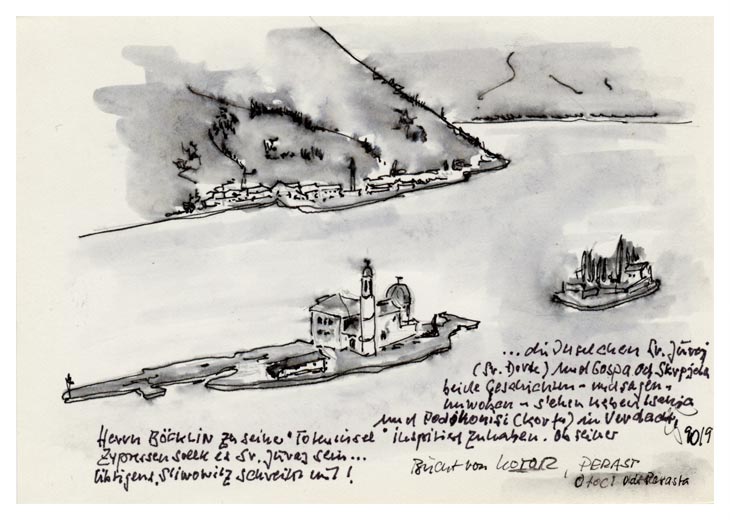 ...die Inselchen Sv. Juraj
(Sv. Đorđe) und Gospa od Skrpjela
beide Geschichten- und sagen-
umwoben - stehen neben
und Pontikonisi (Korfu) in Verdacht,
Herrn BöckLin zu seiner "Toteninsel" inspiriert zu haben. Ob seiner
Zypressen sollte es Sv. Juraj sein...
übrigens, Sliwowitz schreibt mit!
90/9
Bucht von KOTOR, PERAST
Otoci Perasta